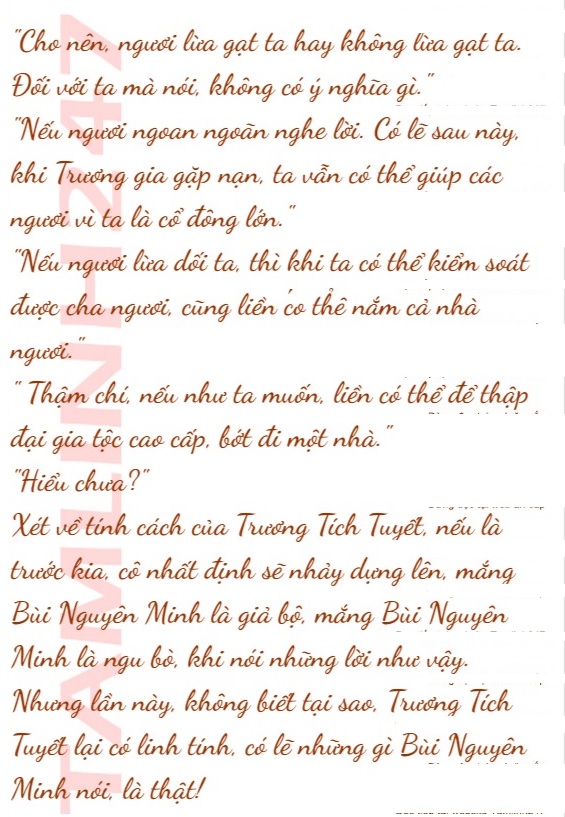 "Cho nên, ngươi lừa gạt ta hay không lừa gạt ta.
Đối với ta mà nói, không có ý nghĩa gì."
"Nếu ngươi ngoan ngoãn nghe lời. Có lẽ sau này,
khi Trương gia gặp nạn, ta vẫn có thể giúp các
ngươi vì ta là cổ đông lớn."
"Nếu ngươi lừa dối ta, thì khi ta có thể kiểm soát
được cha ngươi, cũng liền có thể nắm cả nhà
ngươi."
" Thậm chí, nếu như ta muốn, liền có thể để thập
đại gia tộc cao cấp, bớt đi một nhà."
"Hiểu chưa?"
Xét về tính cách của Trương Tích Tuyết, nếu là
trước kia, cô nhất định sẽ nhảy dựng lên, mắng
Bùi Nguyên Minh là giả bộ, mắng Bùi Nguyên
Minh là ngu bò, khi nói những lời như vậy.
Nhưng lần này, không biết tại sao, Trương Tích
Tuyết lại có linh tính, có lẽ những gì Bùi Nguyên
Minh nói, là thật!
TAMLINH247